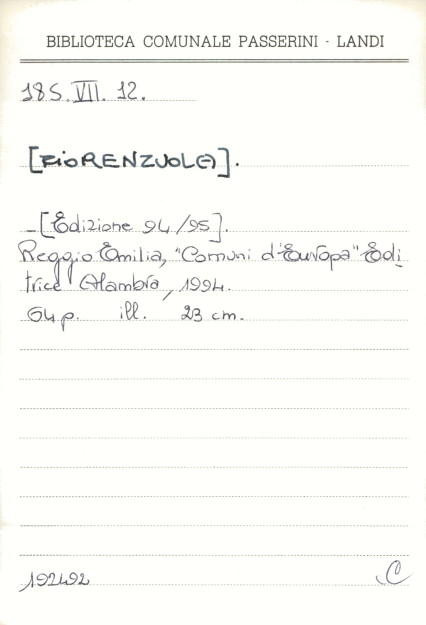 BIBLIOTECA COMUNALE PASSERINI - LANDI
185.VII.12.
[FiORENZUOLA].
_[Edizione 94/95].
Reggio Emilia, "Comuni d'Europa" Edi
trice Alambra, 1994.
64 p. ill. 23 cm.
192492 C